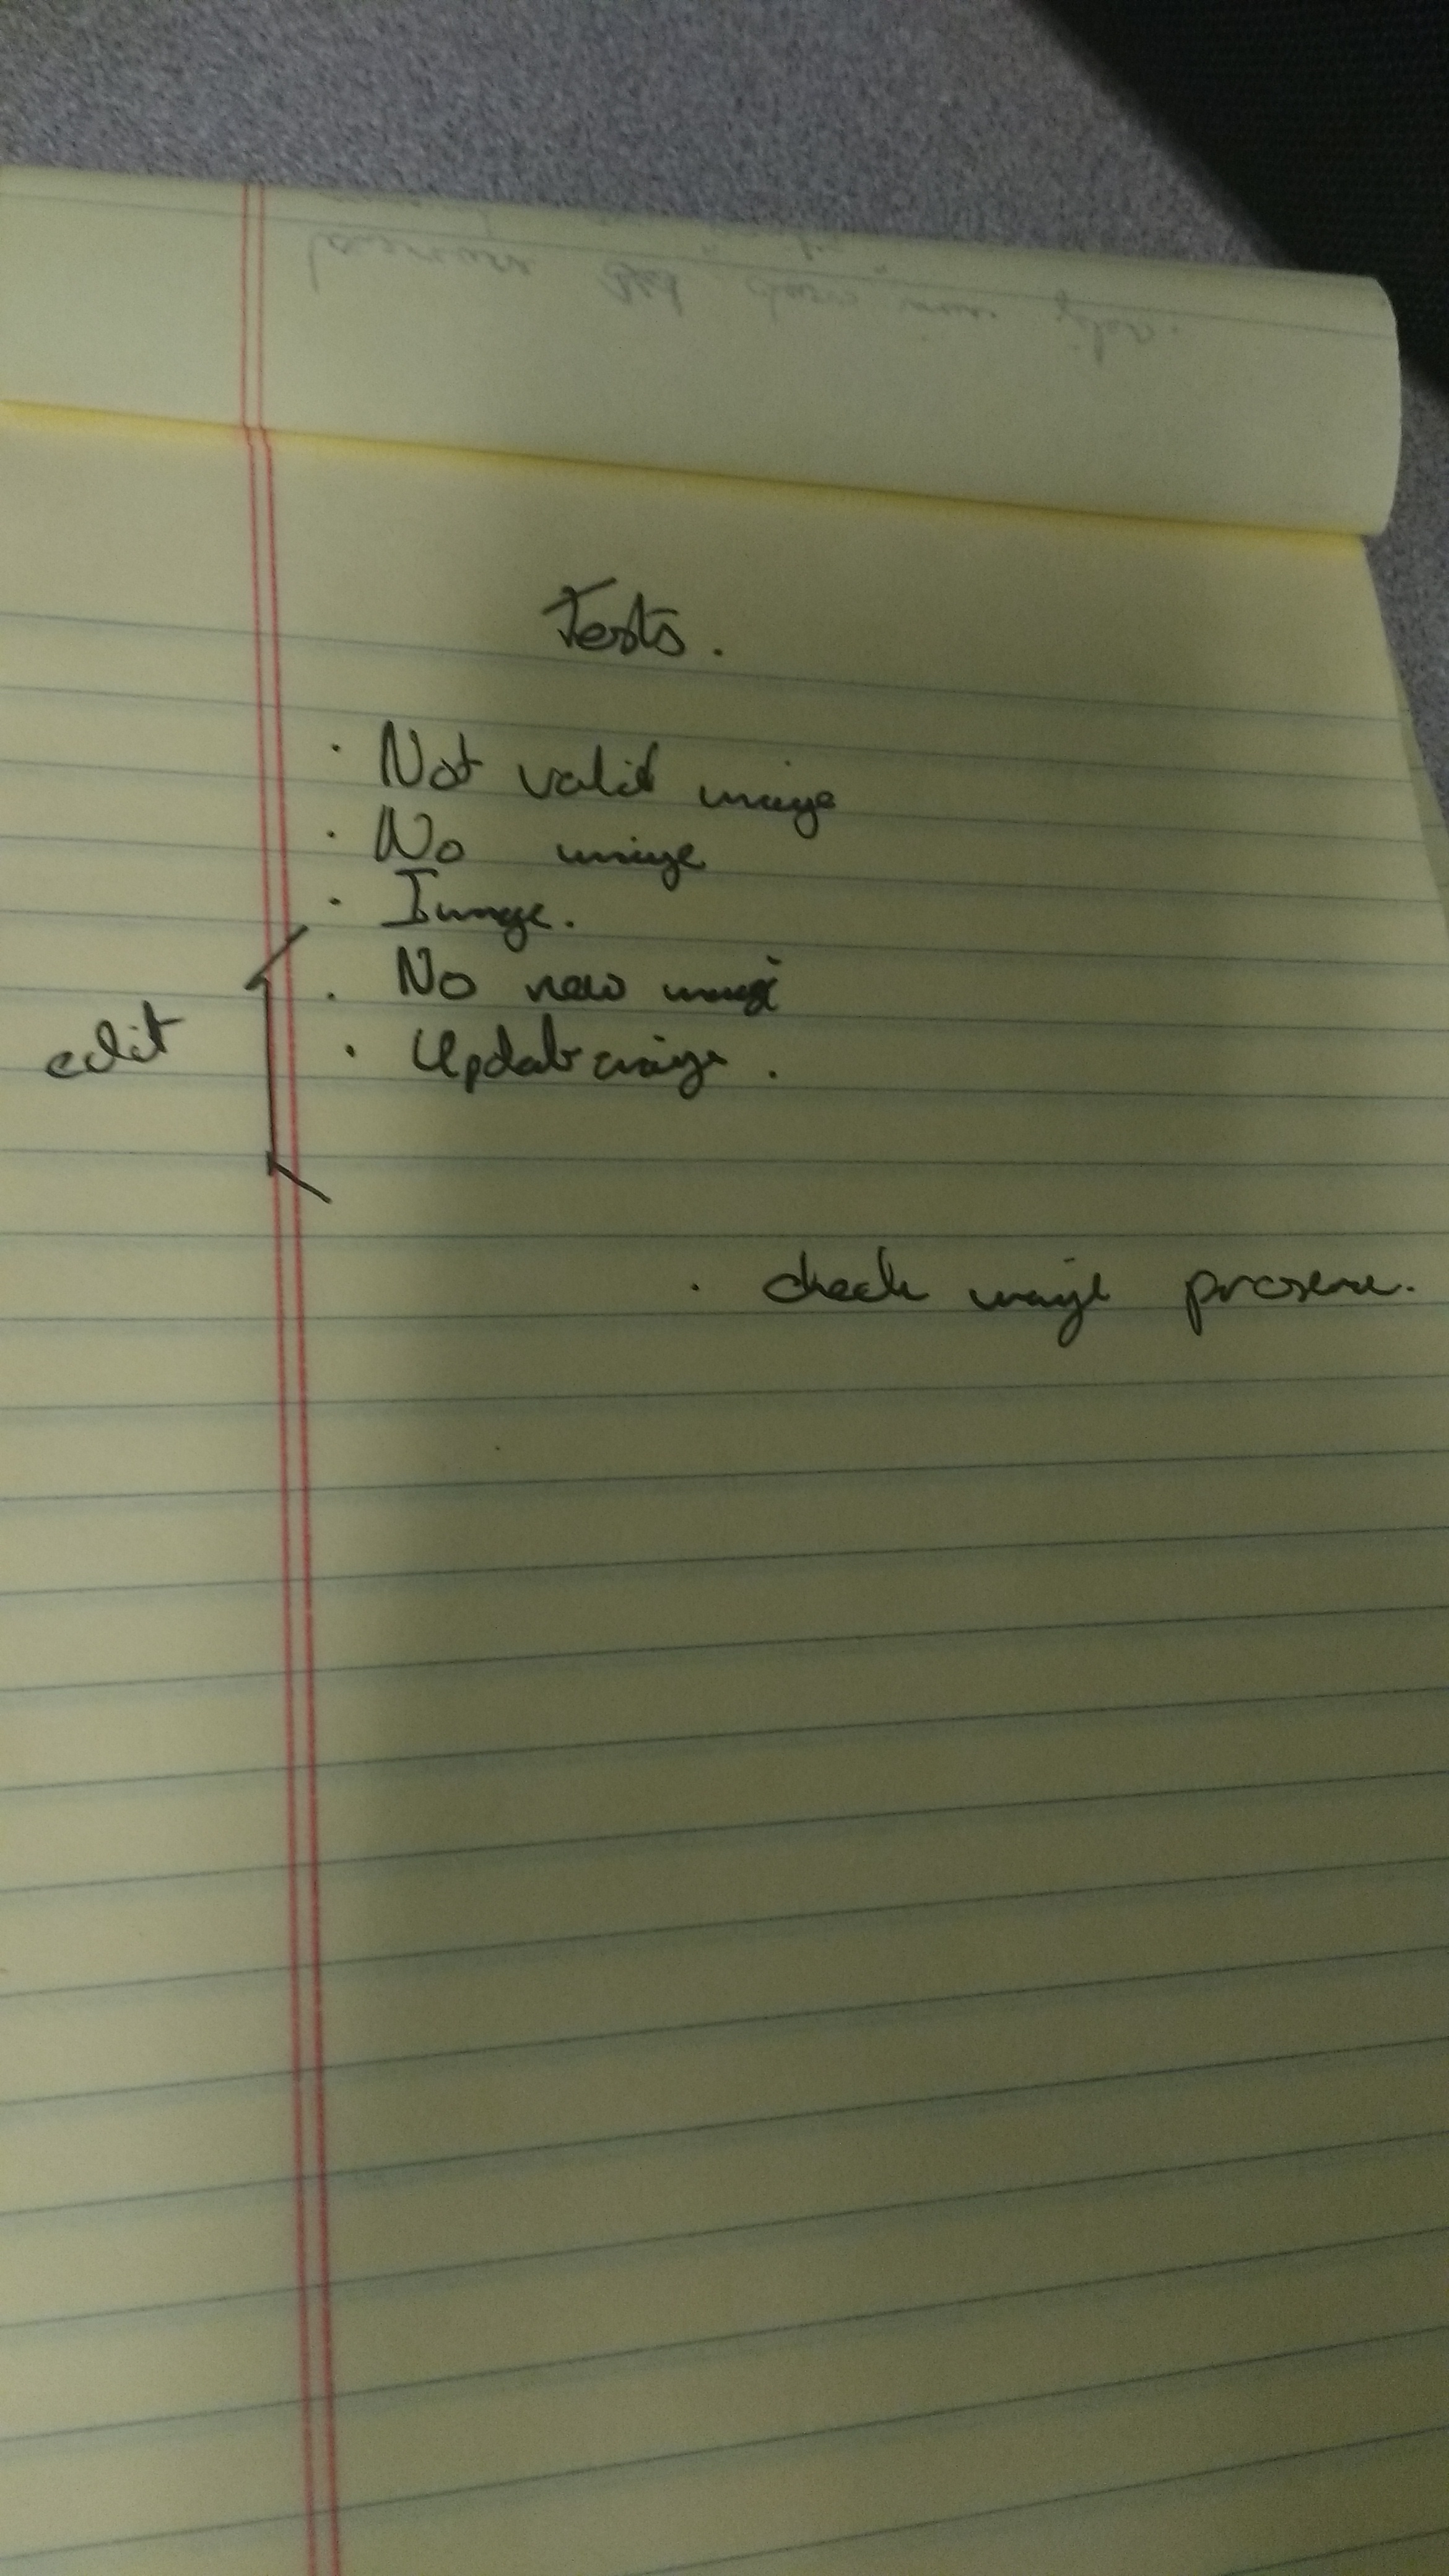 Tests.
· Not valid image
· No image
· Image.
· No new image
edit
· Update image.
· check image presence.